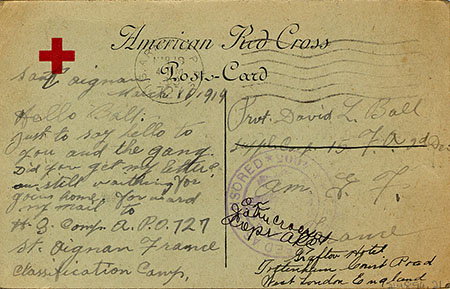 American Red Cross
Post-Card
Saint Aignan
March 1919
Hello Ball:
Just to say hello to
you and the gang
Did you get my letter.
still waithing for
going home. Forward
my mail to
H.Q. Comp. A.P.O. 727
St. Aignan France
Classification Camp,
Prvt. David L. Ball
15 F.A 2d Div
Am. E. F.
CENSORED
France
Grafton Hotel
Tottenham Court Road
West London England